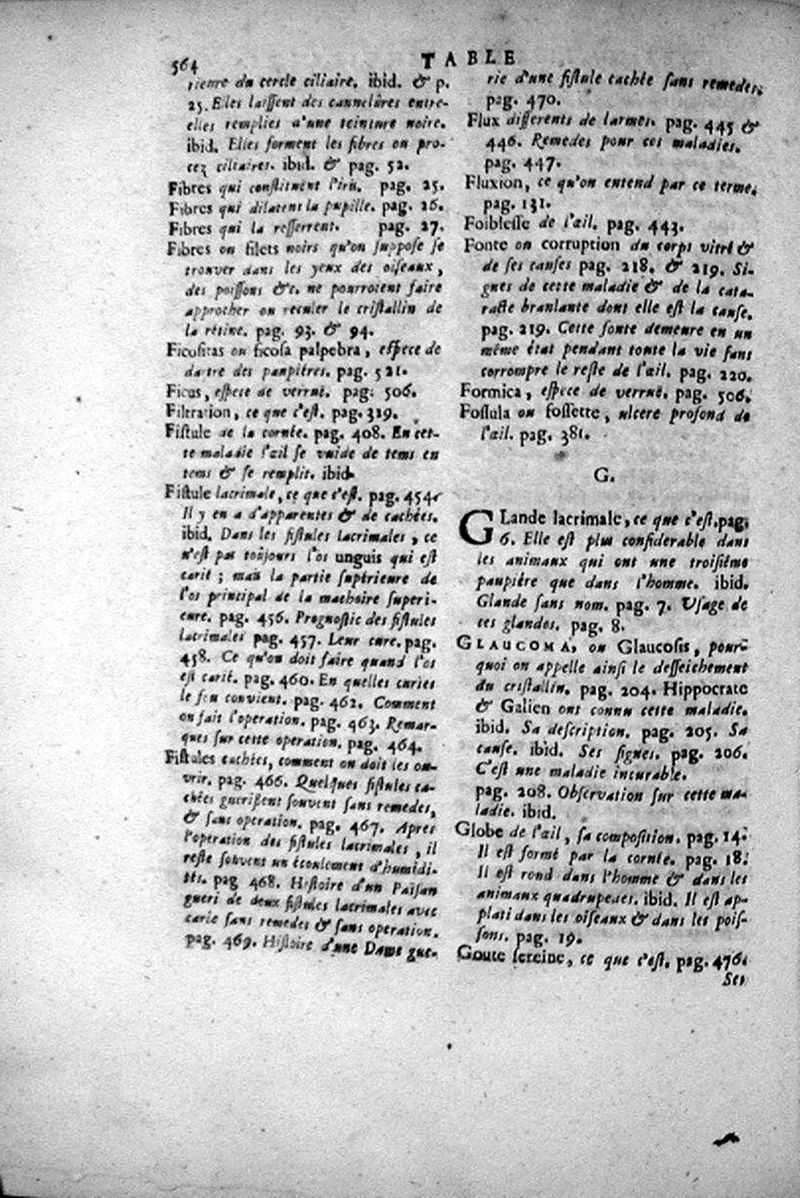 564
TABLE
rieure du cercle ciliaire. ibid. & p.
25. Elles laissent des cannelûres entre-
elles remplies d'une teinture noire.
ibid. Elles forment les fibres ou pro-
cez ciliaires. ibid. & pag. 52.
Fibres qui constituent l'iris. pag. 25.
Fibres qui dilatent la pupille. pag. 26.
Fibres qui la resserrent. pag. 27.
Fibres ou filets noirs qu'on suppose se
trouver dans les yeux des oiseaux,
des poissons &c. ne pourroient faire
approcher ou reculer le cristallin de
la rétine. pag. 93. & 94.
Ficositas ou ficosa palpebra, espece de
dartre des paupières. pag. 521.
Ficus, espece de verruë. pag. 506.
Filtration, ce que c'est. pag. 319.
Fistule de la cornée. pag. 408. En cet-
te maladie l'œil se vuide de tems en
tems & se remplit. ibid.
Fistule lacrimale, ce que c'est. pag. 454.
Il y en a d'apparentes & de cachées.
ibid. Dans les fistules lacrimales, ce
n'est pas toûjours l'os unguis qui est
carié; mais la partie supérieure de
l'os principal de la machoire superi-
eure. pag. 456. Prognostic des fistules
lacrimales pag. 457. Leur cure. pag.
458. Ce qu'on doit faire quand l'os
est carié. pag. 460. En quelles caries
le feu convient. pag. 462. Comment
on fait l'operation. pag. 463. Remar-
ques sur cette operation. pag. 464.
Fistules cachées, comment on doit les ou-
vrir. pag. 466. Quelques fistules ca-
chées guerissent souvent sans remedes,
& sans operation. pag. 467. Apres
l'operation des fistules lacrimales, il
reste souvent un écoulement d'humidi-
tés. pag 468. Histoire d'un Païsan
gueri de deux fistules lacrimales avec
carie sans remedes & sans operation.
pag. 469. Histoire d'une Dame gue-
rie d'une fistule cachée sans remedes.
pag. 470.
Flux differents de larmes. pag. 445 &
446. Remedes pour ces maladies.
pag. 447.
Fluxion, ce qu'on entend par ce terme.
pag. 131.
Foiblesse de l'œil. pag. 443.
Fonte ou corruption du corps vitré &
de ses causes pag. 218. & 219. Si-
gnes de cette maladie & de la cata-
racte branlante dont elle est la cause.
pag. 219. Cette fonte demeure en un
même état pendant toute la vie sans
corrompre le reste de l'œil. pag. 220.
Formica, espece de verruë. pag. 506.
Fossula ou fossette, ulcere profond de
l'œil. pag. 381.
G.
GLande lacrimale, ce que c'est. pag.
6. Elle est plus considerable dans
les animaux qui ont une troisiéme
paupière que dans l'homme. ibid.
Glande sans nom. pag. 7. Usage de
ces glandes. pag. 8.
GLAUCOMA, ou Glaucosis, pour-
quoi on appelle ainsi le desseichement
du cristallin. pag. 204. Hippocrate
& Galien ont connu cette maladie.
ibid. Sa description. pag. 205. Sa
cause. ibid. Ses signes. pag. 206.
C'est une maladie incurable.
pag. 208. Observation sur cette ma-
ladie. ibid.
Globe de l'œil, sa composition. pag. 14.
Il est formé par la cornée. pag. 18.
Il est rond dans l'homme & dans les
animaux quadrupedes. ibid. Il est ap-
plati dans les oiseaux & dans les pois-
sons. pag. 19.
Goute sereine, ce que c'est. pag. 476.
Ses